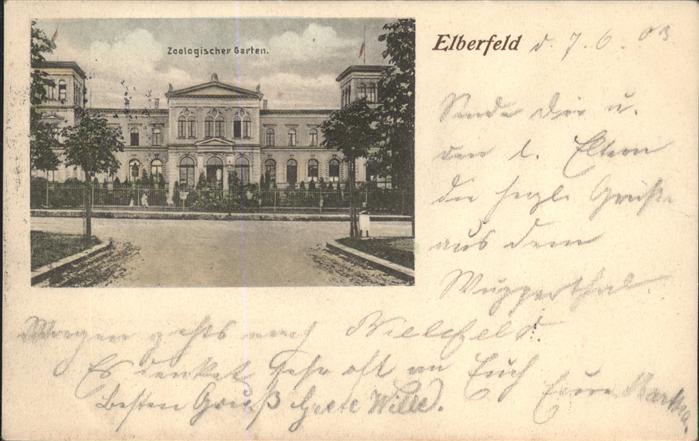 Zoologischer Garten.
Elberfeld d. 7. 6. 03
Sende Dir u.
den l. Eltern
die herzl. Grüße
aus dem
Wupperthal.
Morgen gehts nach Bielefeld.
Es denket sehr oft an Euch
Eure
besten Gruß Grete Wille.